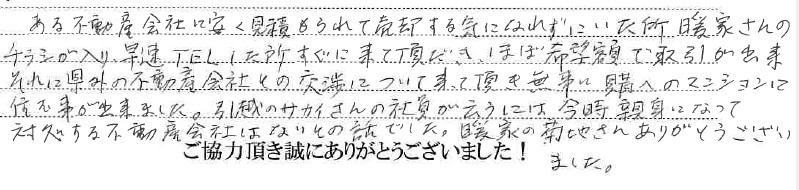 ある不動産会社に安く見積もられて売却する気になれずにいた所 暖家さんの
チラシが入り、早速TELした所すぐに来て頂だき、ほぼ希望額で取引が出来
それに県外の不動産会社との交渉について来て頂き無事に購入のマンションに
住む事が出来ました。引越のサカイさんの社員が云うには今時親身になって
対処する不動産会社はないとの話でした。暖家の菊地さんありがとうござい
ました。
ご協力頂き誠にありがとうございました！